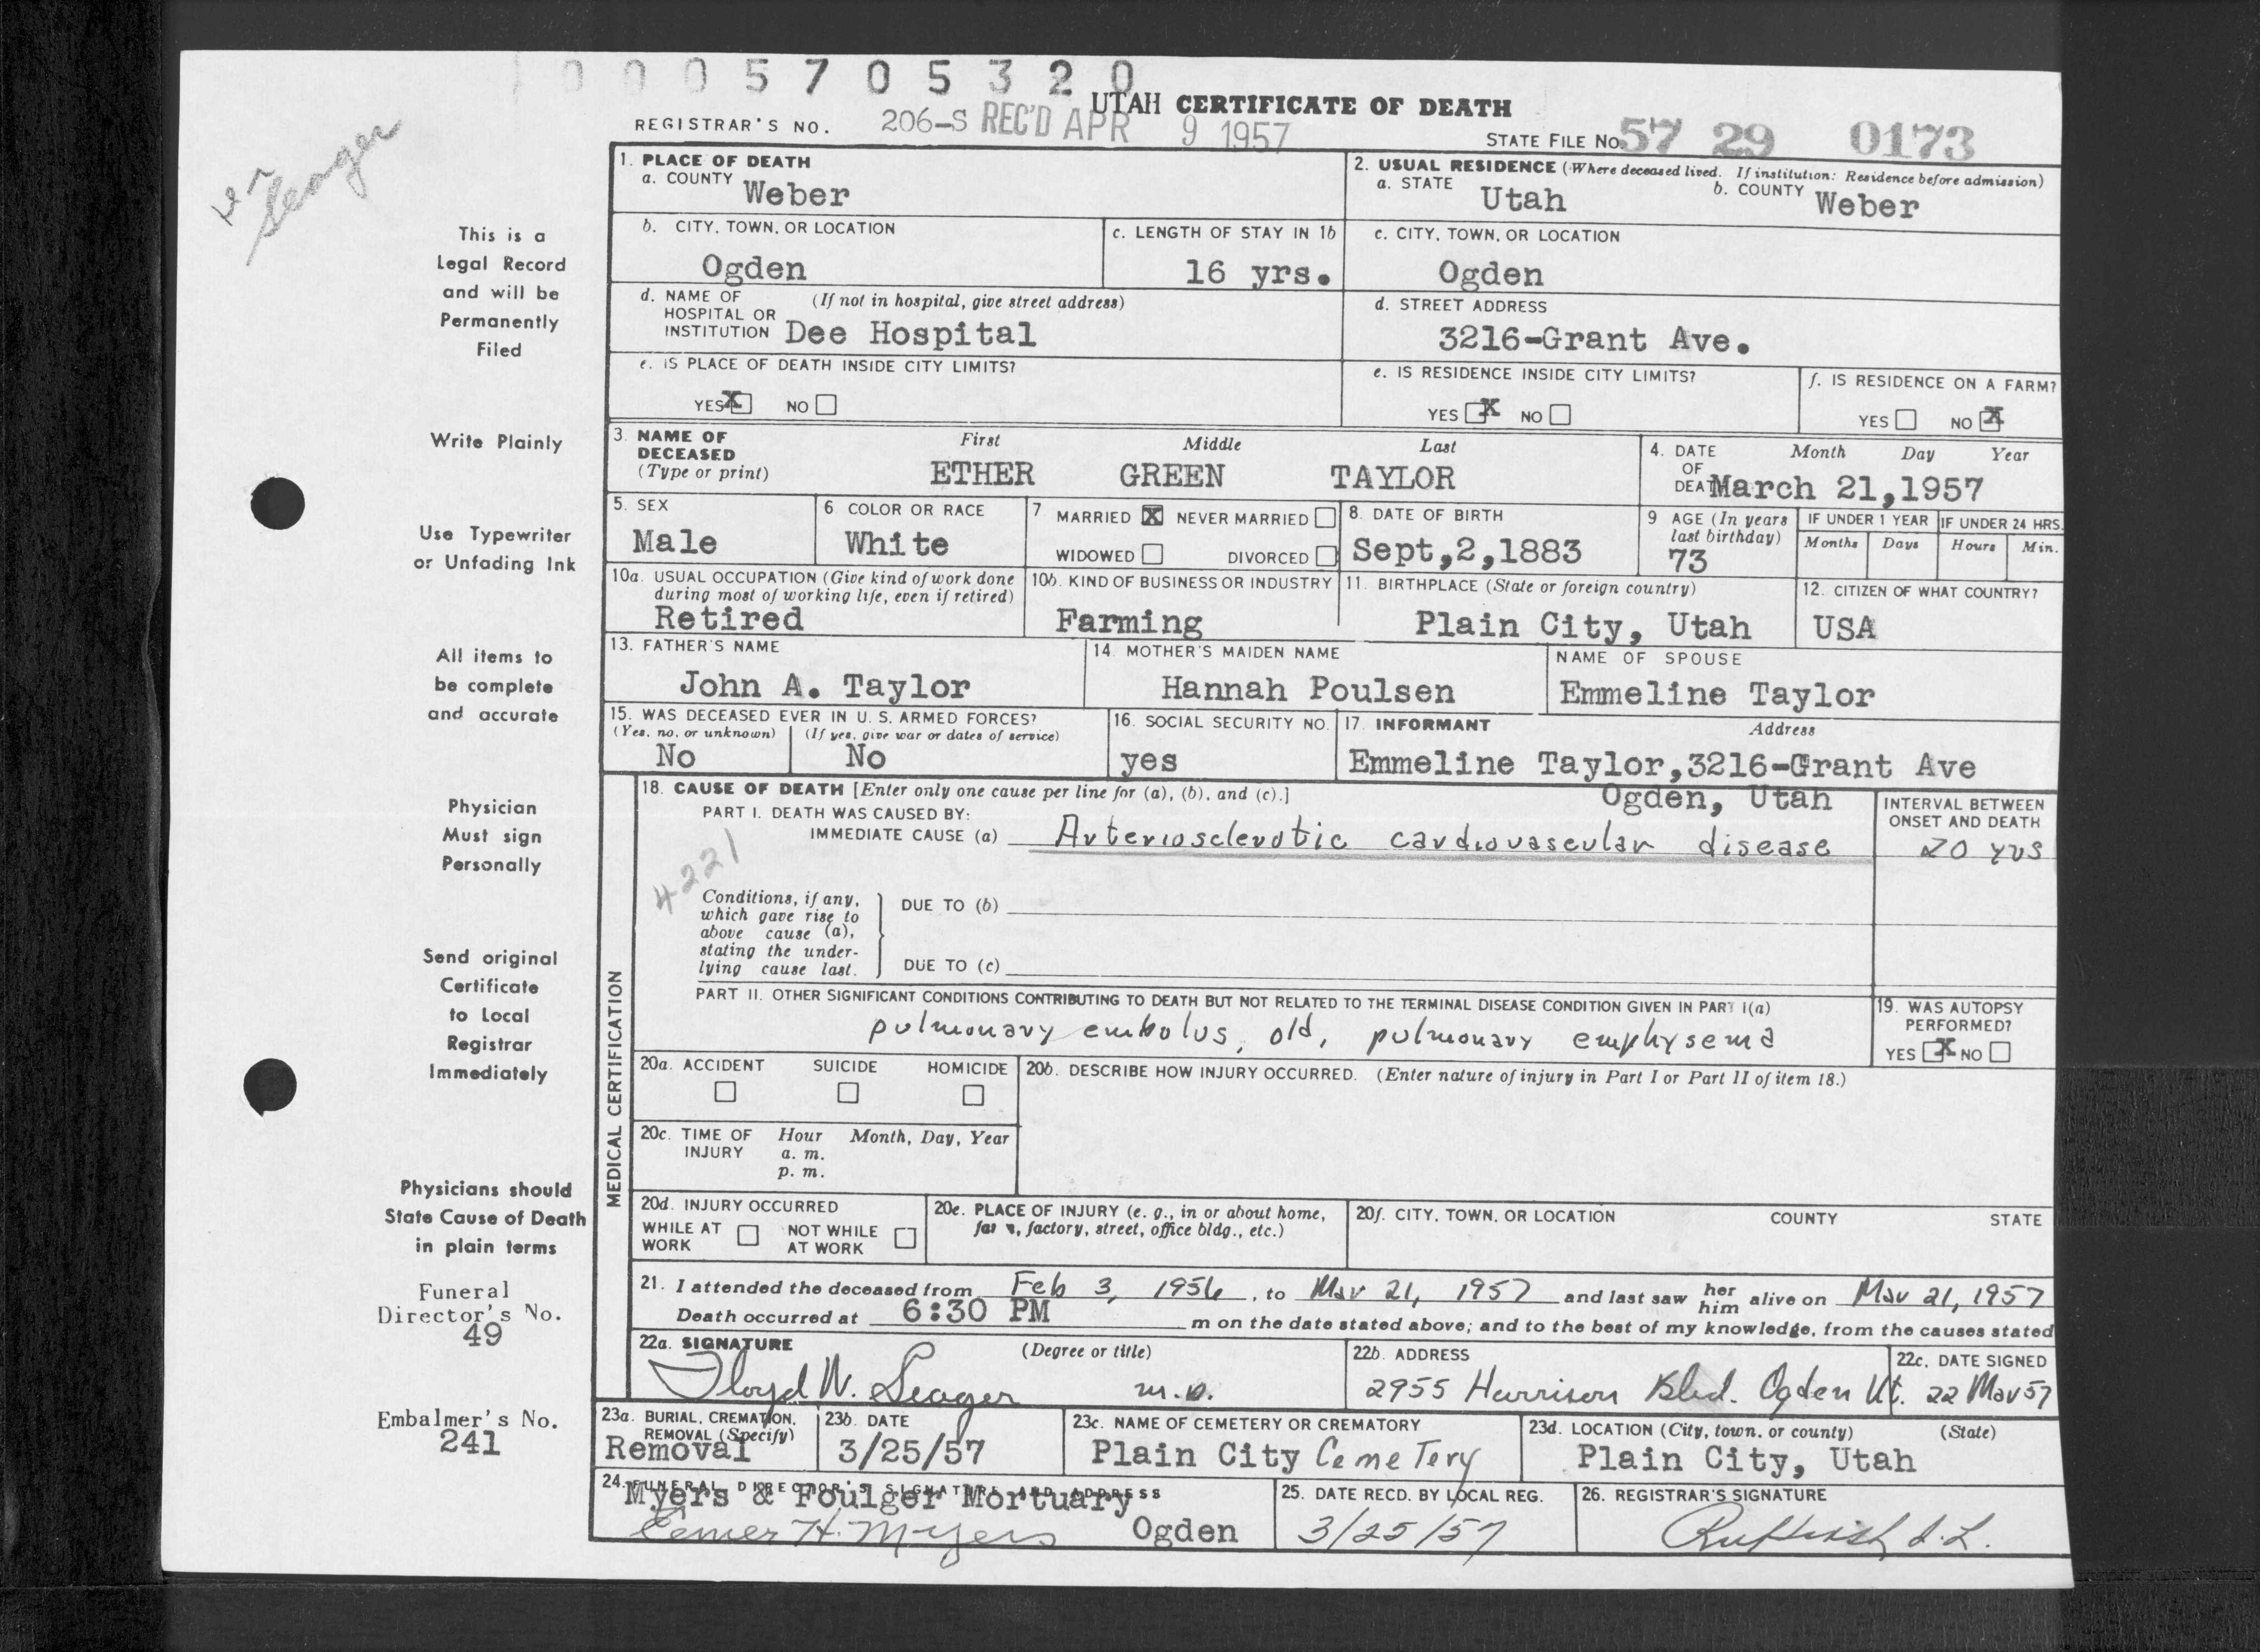 0005705320
UTAH CERTIFICATE OF DEATH
REGISTRAR'S NO. 206-S REC'D APR 9 1957
STATE FILE NO. 57 29 0173
Seager
This is a
Legal Record
and will be
Permanently
Filed
Write Plainly
Use Typewriter
or Unfading Ink
All items to
be complete
and accurate
Physician
Must sign
Personally
Send original
Certificate
to Local
Registrar
Immediately
Physicians should
State Cause of Death
in plain terms
Funeral
Director's No.
49
Embalmer's No.
241
1. PLACE OF DEATH
a. COUNTY Weber
2. USUAL RESIDENCE (Where deceased lived. If institution: Residence before admission)
a. STATE Utah b. COUNTY Weber
b. CITY, TOWN, OR LOCATION
Ogden
c. LENGTH OF STAY IN 1b
16 yrs.
c. CITY, TOWN, OR LOCATION
Ogden
d. NAME OF (If not in hospital, give street address)
HOSPITAL OR
INSTITUTION Dee Hospital
d. STREET ADDRESS
3216-Grant Ave.
e. IS PLACE OF DEATH INSIDE CITY LIMITS?
YES X NO
e. IS RESIDENCE INSIDE CITY LIMITS?
YES X NO
f. IS RESIDENCE ON A FARM?
YES NO X
3. NAME OF First Middle Last
DECEASED
(Type or print) ETHER GREEN TAYLOR
4. DATE Month Day Year
OF
DEATH March 21,1957
5. SEX
Male
6. COLOR OR RACE
White
7 MARRIED X NEVER MARRIED
WIDOWED DIVORCED
8. DATE OF BIRTH
Sept,2,1883
9 AGE (In years
last birthday)
73
IF UNDER 1 YEAR
Months Days
IF UNDER 24 HRS.
Hours Min.
10a. USUAL OCCUPATION (Give kind of work done
during most of working life, even if retired)
Retired
10b. KIND OF BUSINESS OR INDUSTRY
Farming
11. BIRTHPLACE (State or foreign country)
Plain City, Utah
12. CITIZEN OF WHAT COUNTRY?
USA
13. FATHER'S NAME
John A. Taylor
14. MOTHER'S MAIDEN NAME
Hannah Poulsen
NAME OF SPOUSE
Emmeline Taylor
15. WAS DECEASED EVER IN U. S. ARMED FORCES?
(Yes, no, or unknown) (If yes, give war or dates of service)
No No
16. SOCIAL SECURITY NO.
yes
17. INFORMANT Address
Emmeline Taylor,3216-Grant Ave
Ogden, Utah
MEDICAL CERTIFICATION
18. CAUSE OF DEATH [Enter only one cause per line for (a), (b), and (c).]
PART I. DEATH WAS CAUSED BY:
IMMEDIATE CAUSE (a) Arteriosclerotic cardiovascular disease
INTERVAL BETWEEN
ONSET AND DEATH
20 yrs
4221
Conditions, if any,
which gave rise to
above cause (a),
stating the under-
lying cause last.
DUE TO (b)
DUE TO (c)
PART II. OTHER SIGNIFICANT CONDITIONS CONTRIBUTING TO DEATH BUT NOT RELATED TO THE TERMINAL DISEASE CONDITION GIVEN IN PART I(a)
pulmonary embolus, old, pulmonary emphysema
19. WAS AUTOPSY
PERFORMED?
YES X NO
20a. ACCIDENT SUICIDE HOMICIDE
20b. DESCRIBE HOW INJURY OCCURRED. (Enter nature of injury in Part I or Part II of item 18.)
20c. TIME OF Hour Month, Day, Year
INJURY a. m.
p. m.
20d. INJURY OCCURRED
WHILE AT NOT WHILE
WORK AT WORK
20e. PLACE OF INJURY (e. g., in or about home,
farm, factory, street, office bldg., etc.)
20f. CITY, TOWN, OR LOCATION COUNTY STATE
21. I attended the deceased from Feb 3, 1956, to Mar 21, 1957 and last saw her him alive on Mar 21, 1957
Death occurred at 6:30 PM m on the date stated above; and to the best of my knowledge, from the causes stated
22a. SIGNATURE (Degree or title)
Floyd W. Seager M.D.
22b. ADDRESS
2955 Harrison Blvd. Ogden Ut.
22c. DATE SIGNED
22 Mar 57
23a. BURIAL, CREMATION,
REMOVAL (Specify)
Removal
23b. DATE
3/25/57
23c. NAME OF CEMETERY OR CREMATORY
Plain City Cemetery
23d. LOCATION (City, town, or county) (State)
Plain City, Utah
24. FUNERAL DIRECTOR'S SIGNATURE AND ADDRESS
Myers & Foulger Mortuary
Elmer H. Myers Ogden
25. DATE RECD. BY LOCAL REG.
3/25/57
26. REGISTRAR'S SIGNATURE